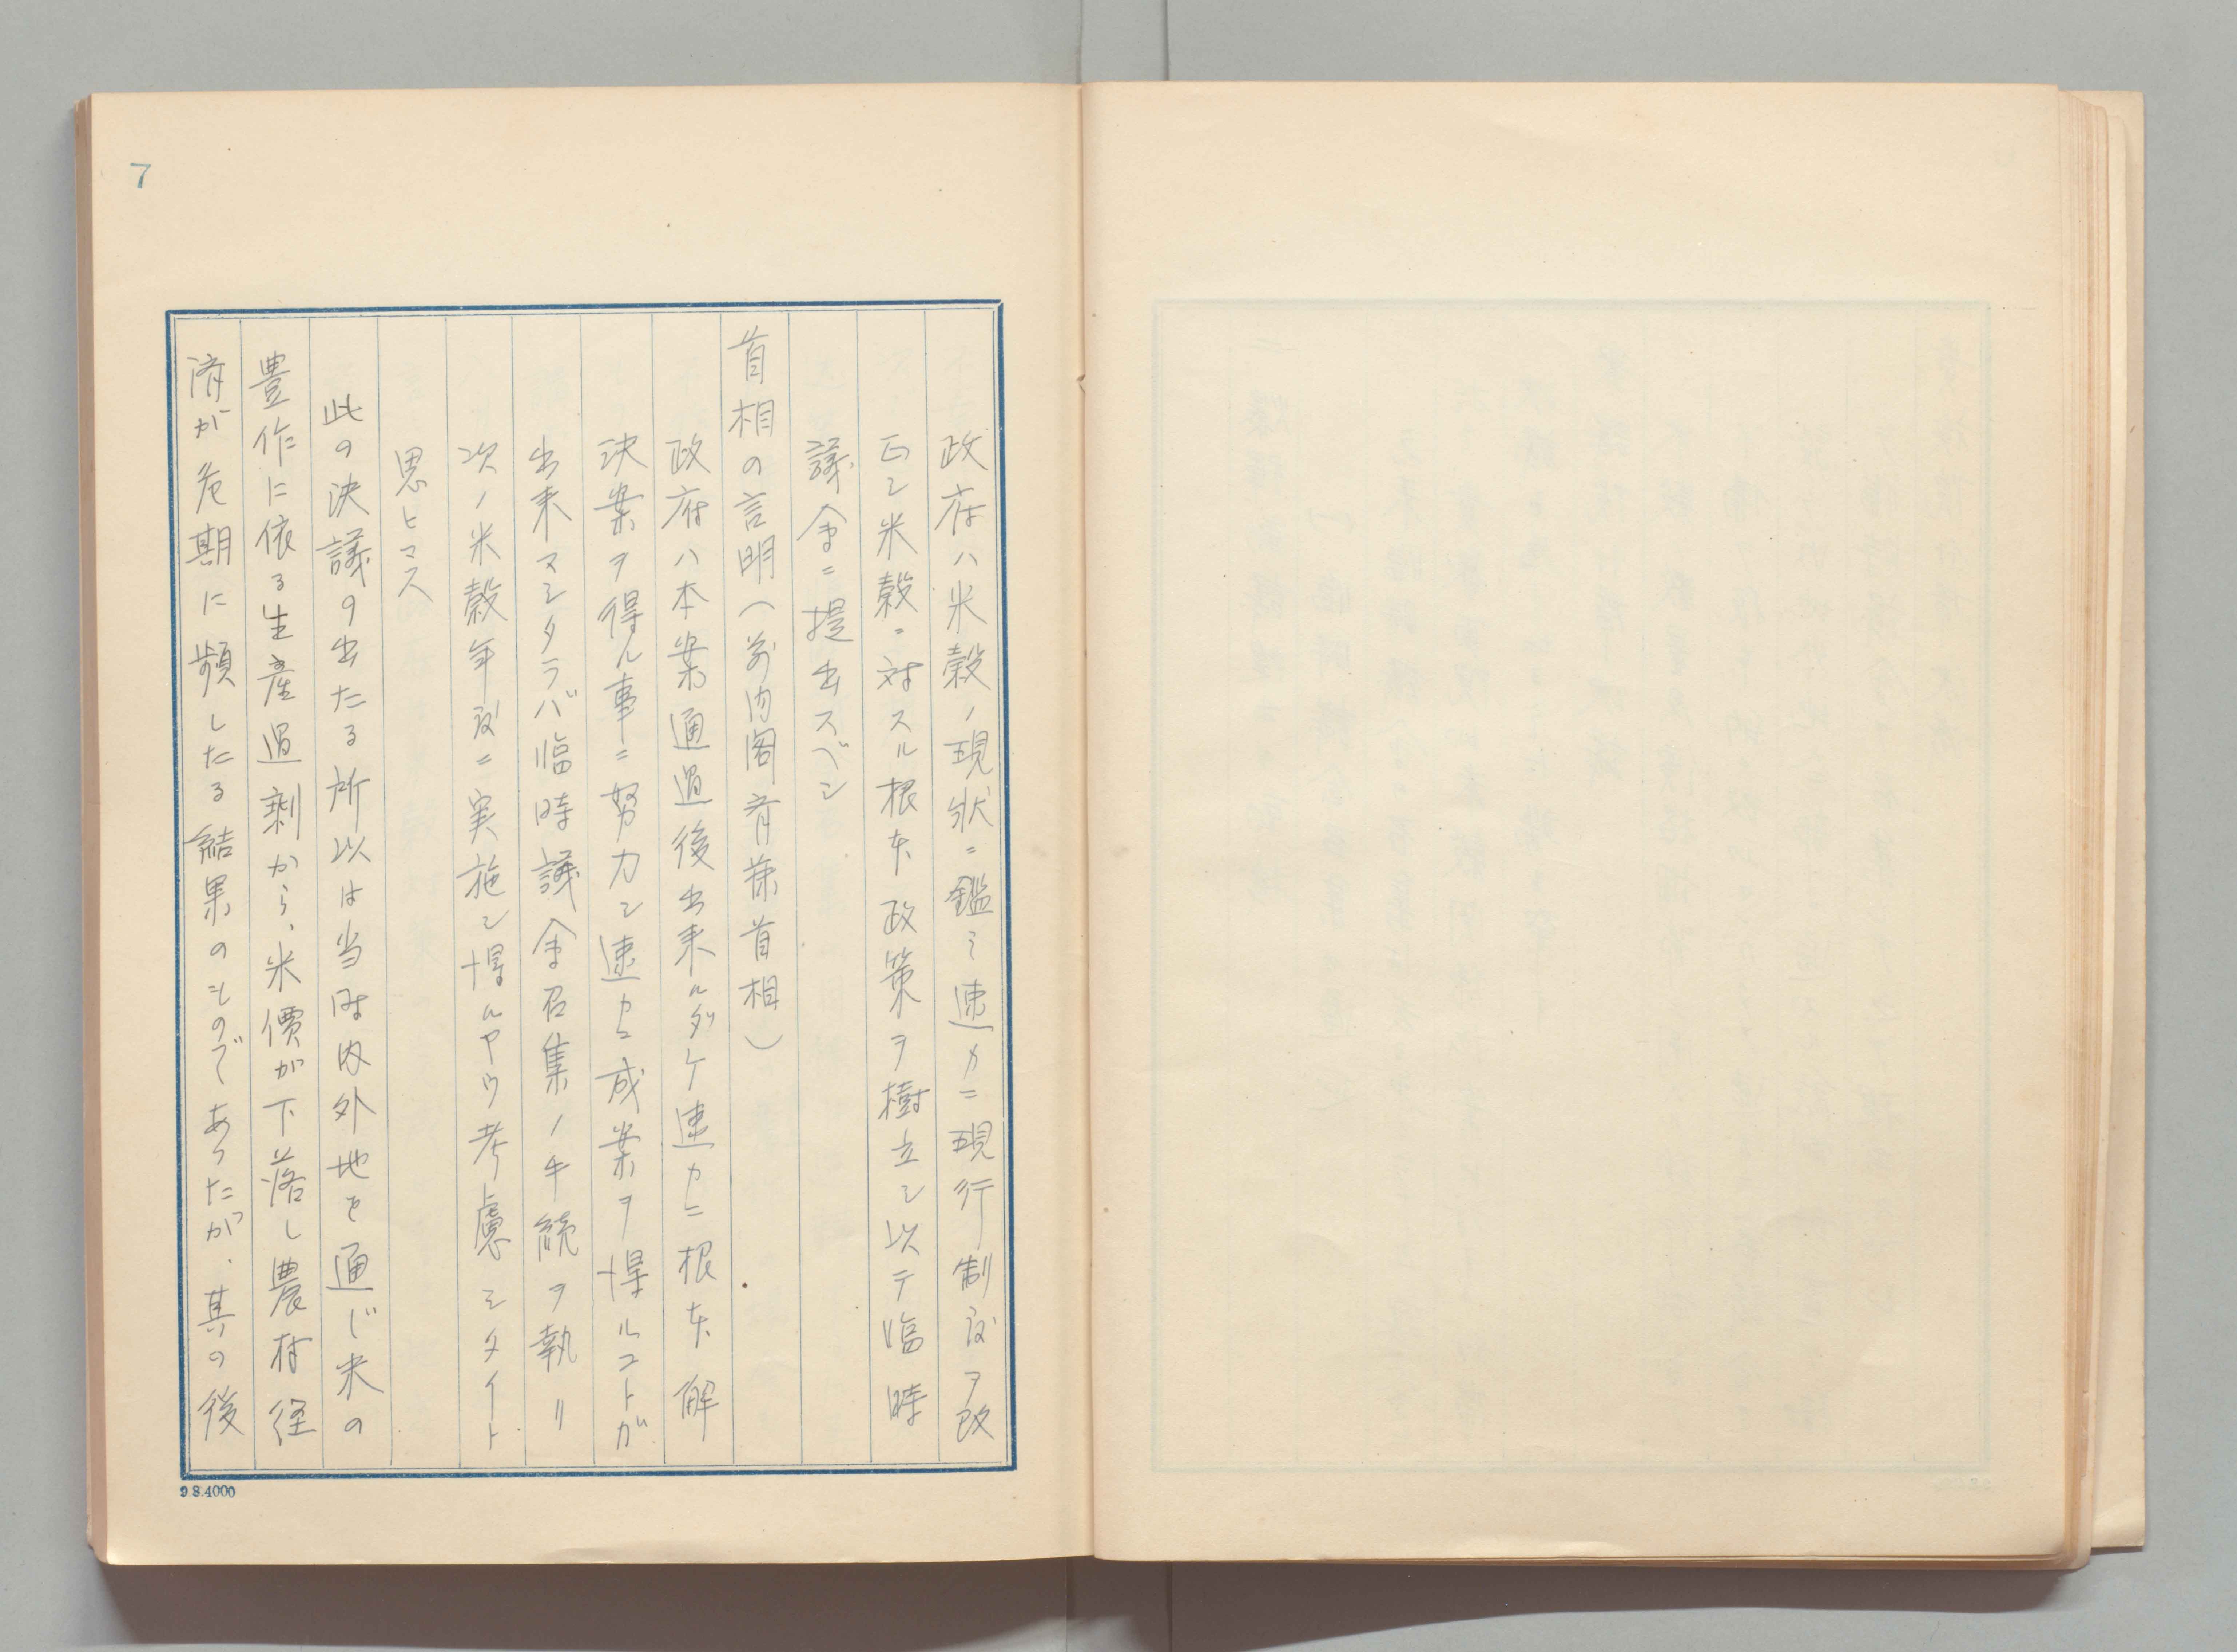 7
政府ハ米穀ノ現状ニ鑑ミ速カニ現行制度ヲ改
正シ米穀ニ対スル根本政策ヲ樹立シ以テ臨時
議会ニ提出スベシ
首相の言明（前内閣斎藤首相）
政府ハ本案通過後出来ルダケ速カニ根本解
決案ヲ得ル事ニ努力シ速カニ成案ヲ得ルコトガ
出来マシタラバ臨時議会召集ノ手続ヲ執リ
次ノ米穀年度ニ実施シ得ルヤウ考慮シタイト
思ヒマス
此の決議の出たる所以は当時内外地を通じ米の
豊作に依る生産過剰から、米價が下落し農村経
済が危期に頻したる結果のものであつたが、其の後
9.8.4000